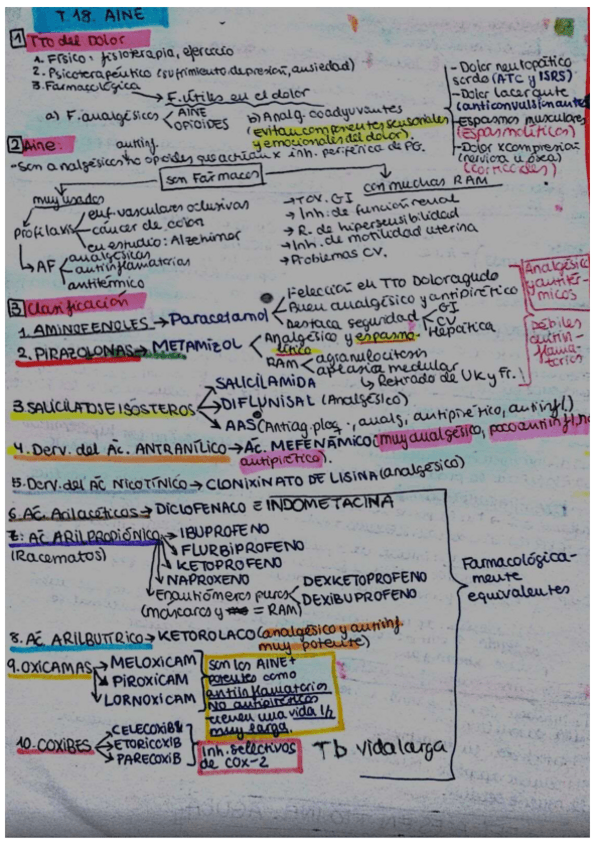 T.18. AINE
1 TTO del Dolor
1. Físico: fisioterapia, ejercicio
2. Psicoterapéutico (sufrimiento depresión, ansiedad)
3. Farmacológica
→ F. útiles en el dolor
a) F. analgésicos
AINE
OPIOIDES
b) Analg. coadyuvantes
(evitan componentes sensoriales
y emocionales del dolor).
- Dolor neuropático
sordo (ATC y ISRS)
- Dolor lacerante
(anticonvulsionante)
- Espasmos musculares
(Espasmolíticos)
- Dolor x compresión
(nerviosa u ósea)
(corticoides)
2 Aine: antiinf.
- Son analgésicos no opioides que actúan x inh. periférica de PG.
son Fármacos
muy usados
Profilaxis
enf. vasculares oclusivas
cáncer de colon
en estudio: Alzehimer
→ AF
analgésicas
antiinflamatorias
antitérmico
con muchas RAM
→ TCV. GI
→ Inh. de función renal
→ R. de hipersensibilidad
→ Inh. de motilidad uterina
→ Problemas CV.
3 Clasificación
1. AMINOFENOLES → Paracetamol
1ª elección en TTO Dolor agudo
Buen analgésico y antipirético
Destaca seguridad
GI
CV
Hepática
2. PIRAZOLONAS → METAMIZOL
Analgésico y espasmolítico
RAM
agranulocitosis
aplasia medular
↳ Retirado de UK y Fr.
Analgésicos
y antitér-
micos
Débiles
antiin-
flama-
torios
3. SALICILATOS E ISÓSTEROS
SALICILAMIDA
DIFLUNISAL (Analgésico)
AAS (Antiag. plaq., analg, antipirético, antiinfl)
4. Deriv. del Ác. ANTRANÍLICO → Ác. MEFENÁMICO (muy analgésico, poco antiinfl, no
antipirético).
5. Deriv. del Ác NICOTÍNICO → CLONIXINATO DE LISINA (analgésico)
6. Ác. Arilacéticos → DICLOFENACO E INDOMETACINA
7. Ác ARILPROPIÓNICO
(Racematos)
→ IBUPROFENO
→ FLURBIPROFENO
→ KETOPROFENO
NAPROXENO
Enantiómeros puros
(más caros y = RAM)
DEXKETOPROFENO
DEXIBUPROFENO
8. Ác ARILBUTÍRICO → KETOROLACO (analgésico y antiinf.
muy potente)
9. OXICAMAS
MELOXICAM
PIROXICAM
LORNOXICAM
son los AINE +
potentes como
antiinflamatorios
No antipiréticos
tienen una vida 1/2
muy larga.
10. COXIBES
CELECOXIB
ETORICOXIB
PARECOXIB
Inh. selectivos
de COX-2
Tb vida larga
Farmacológica-
mente
equivalentes